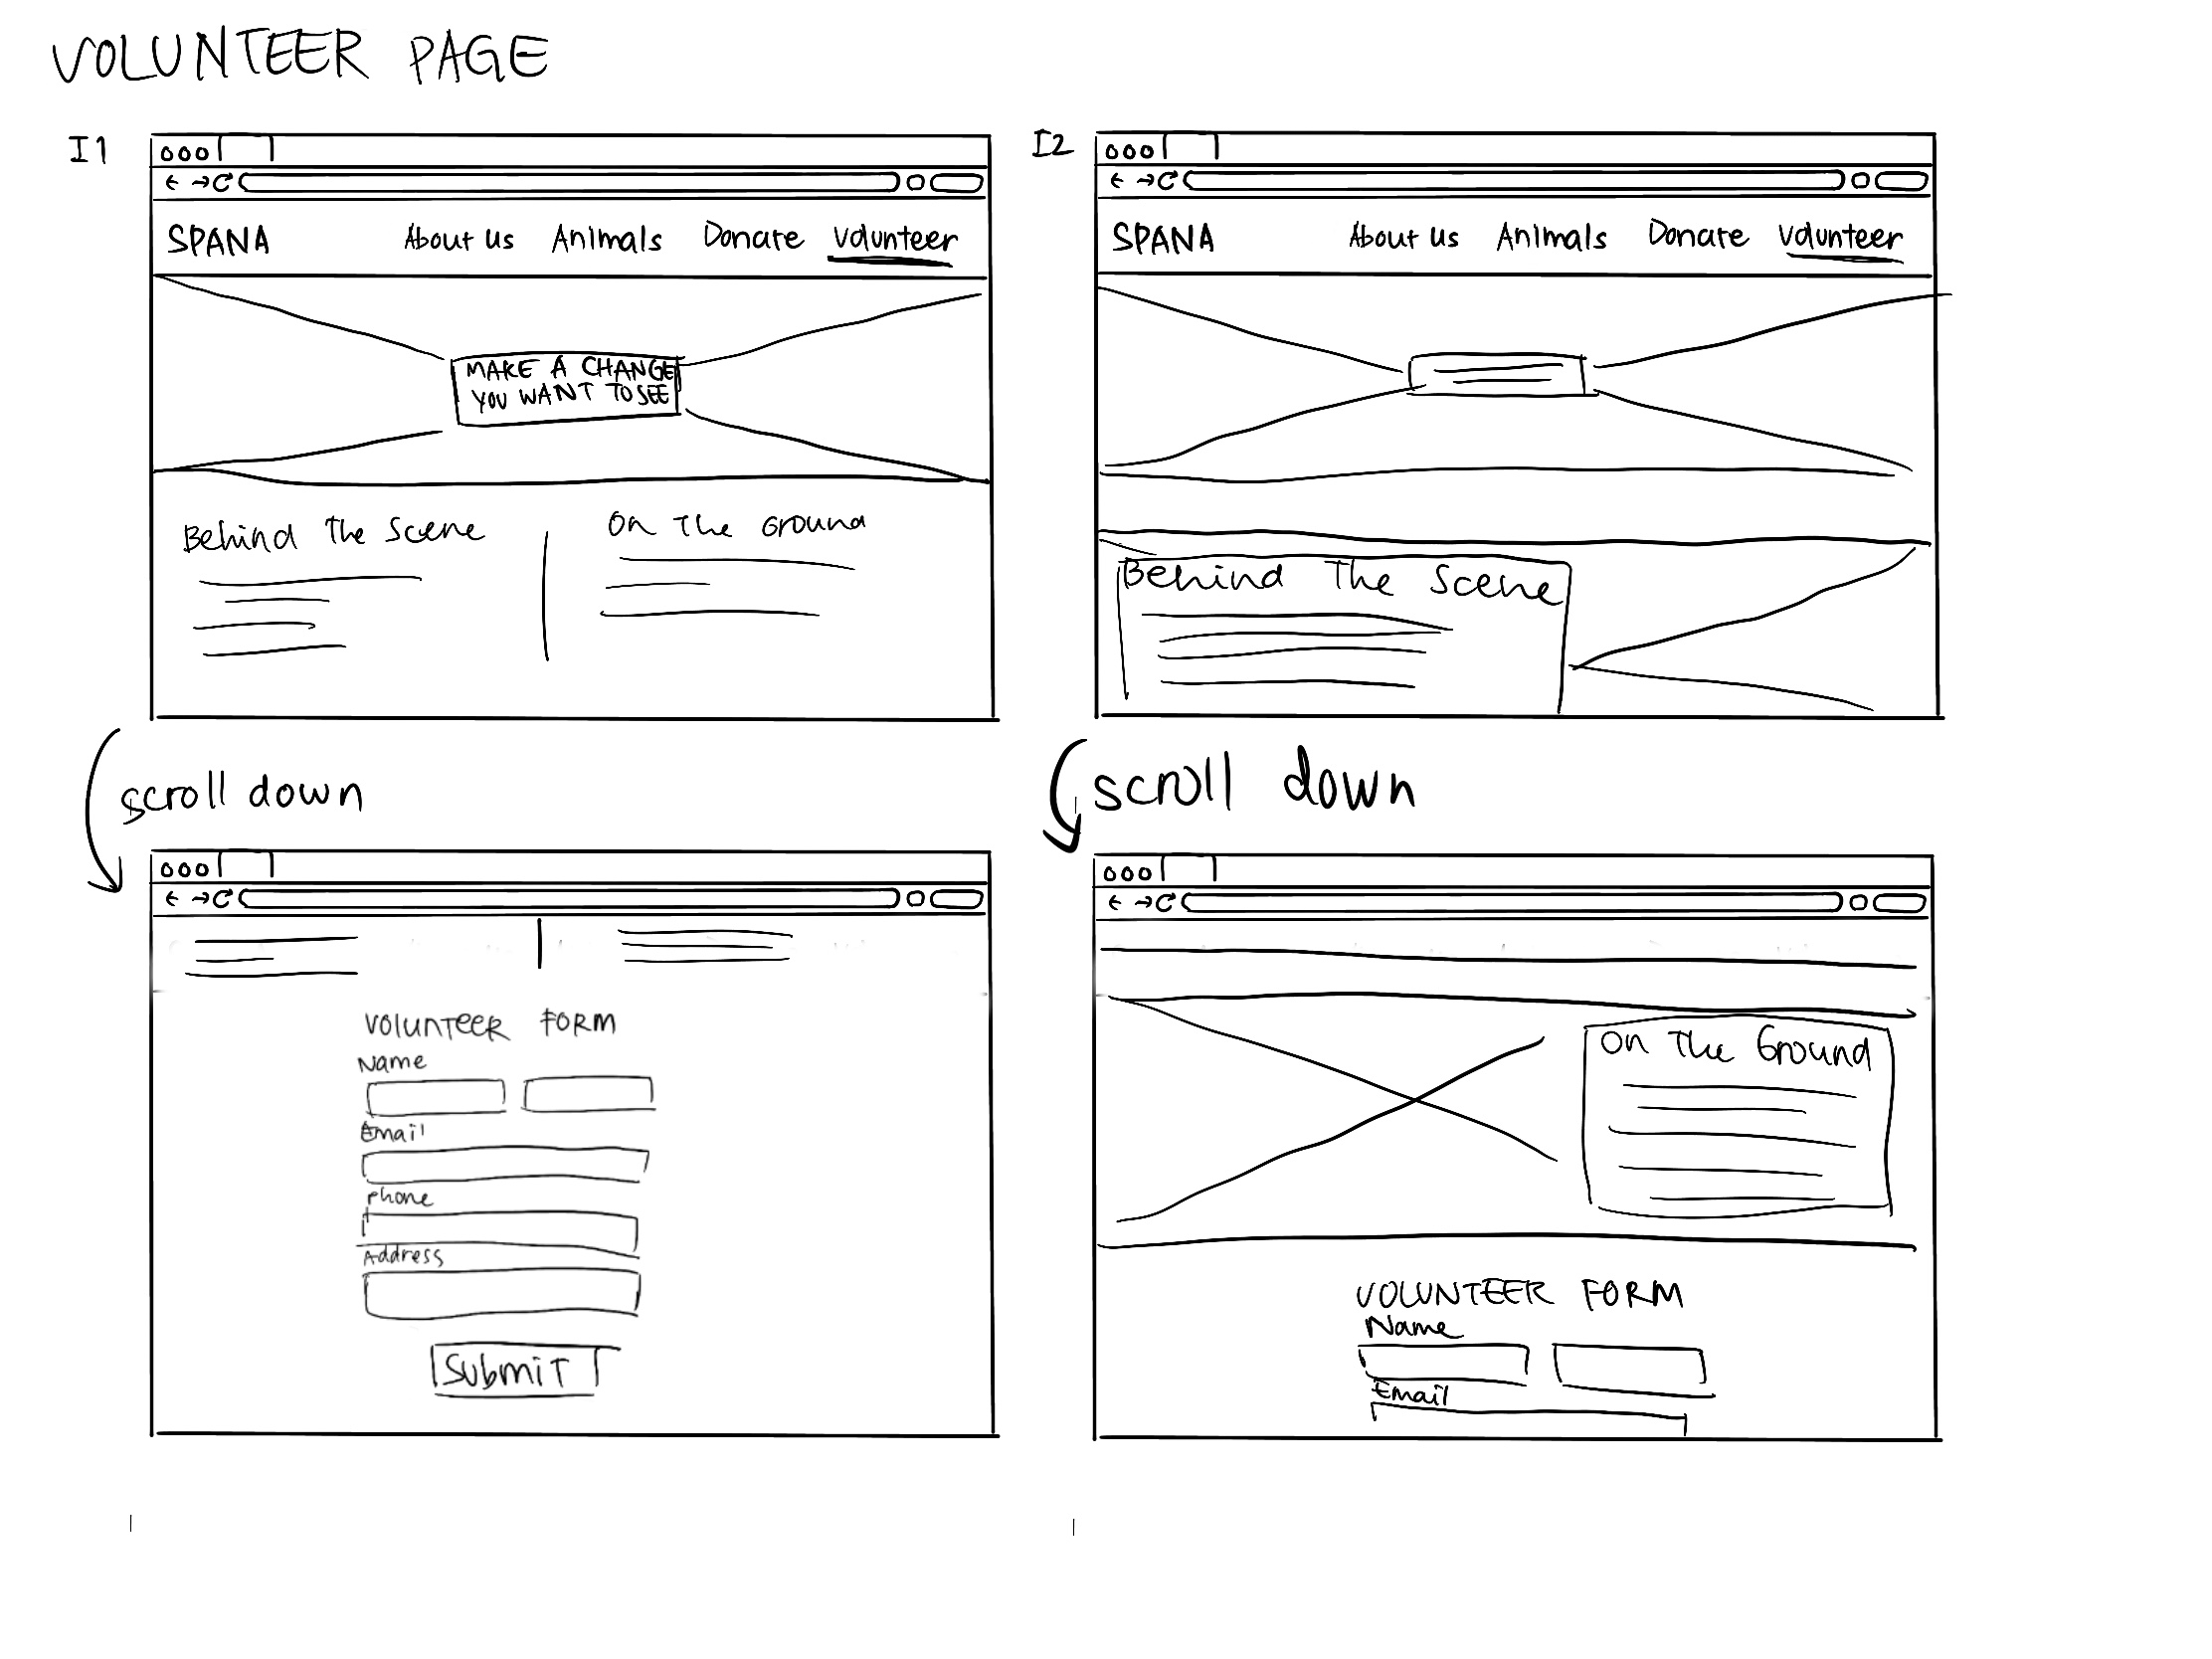 VOLUNTEER PAGE
I1
SPANA About Us Animals Donate Volunteer
MAKE A CHANGE
YOU WANT TO SEE
Behind The Scene
On The Ground
scroll down
VOLUNTEER FORM
Name
Email
Phone
Address
Submit
I2
SPANA About Us Animals Donate Volunteer
Behind The Scene
scroll down
On The Ground
VOLUNTEER FORM
Name
Email